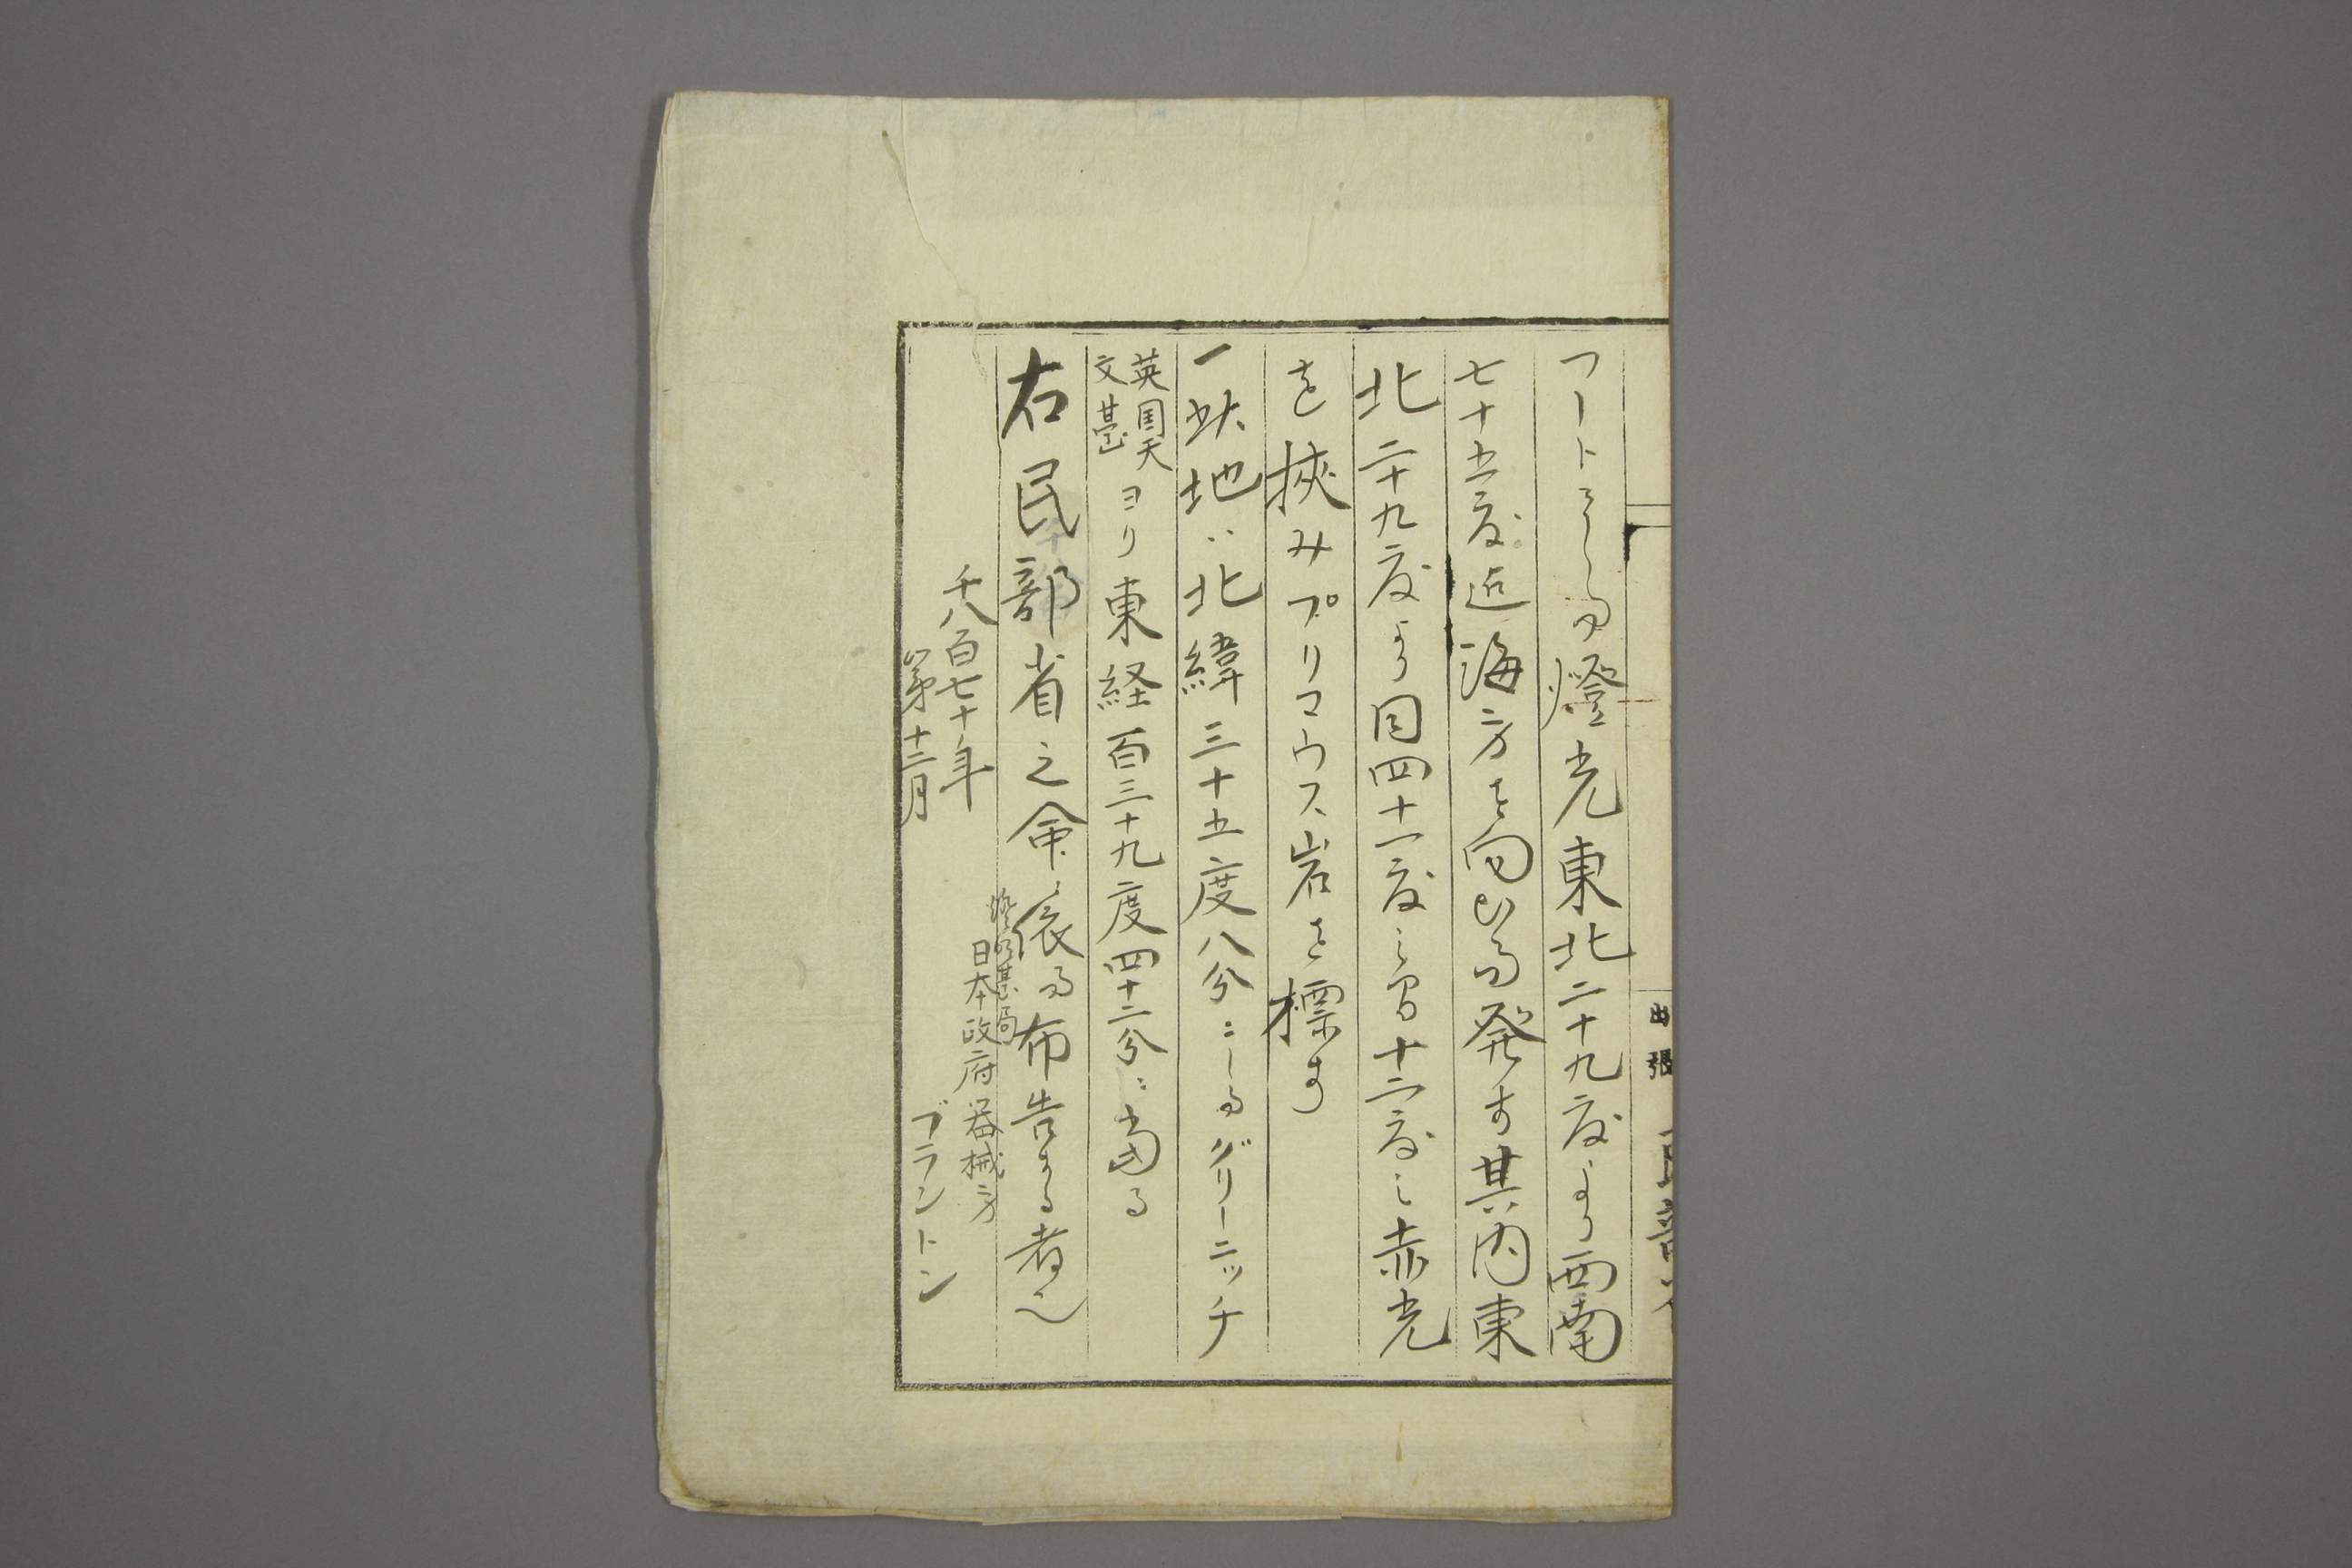 フートにして燈光東北二十九度より西南
七十五度迄海方を向ひて発す其内東
北二十九度より同四十一度之間十二度之赤光
を挾みプリマウス岩を標す
一此地ハ北緯三十五度八分ニしてグリーニッチ
英国天文臺ヨリ東経百三十九度四十二分ニ当る
右民部省之命ニ依て布告する者也
燈明臺局
日本政府器械方
千八百七十年
第十二月
ブラントン
出張